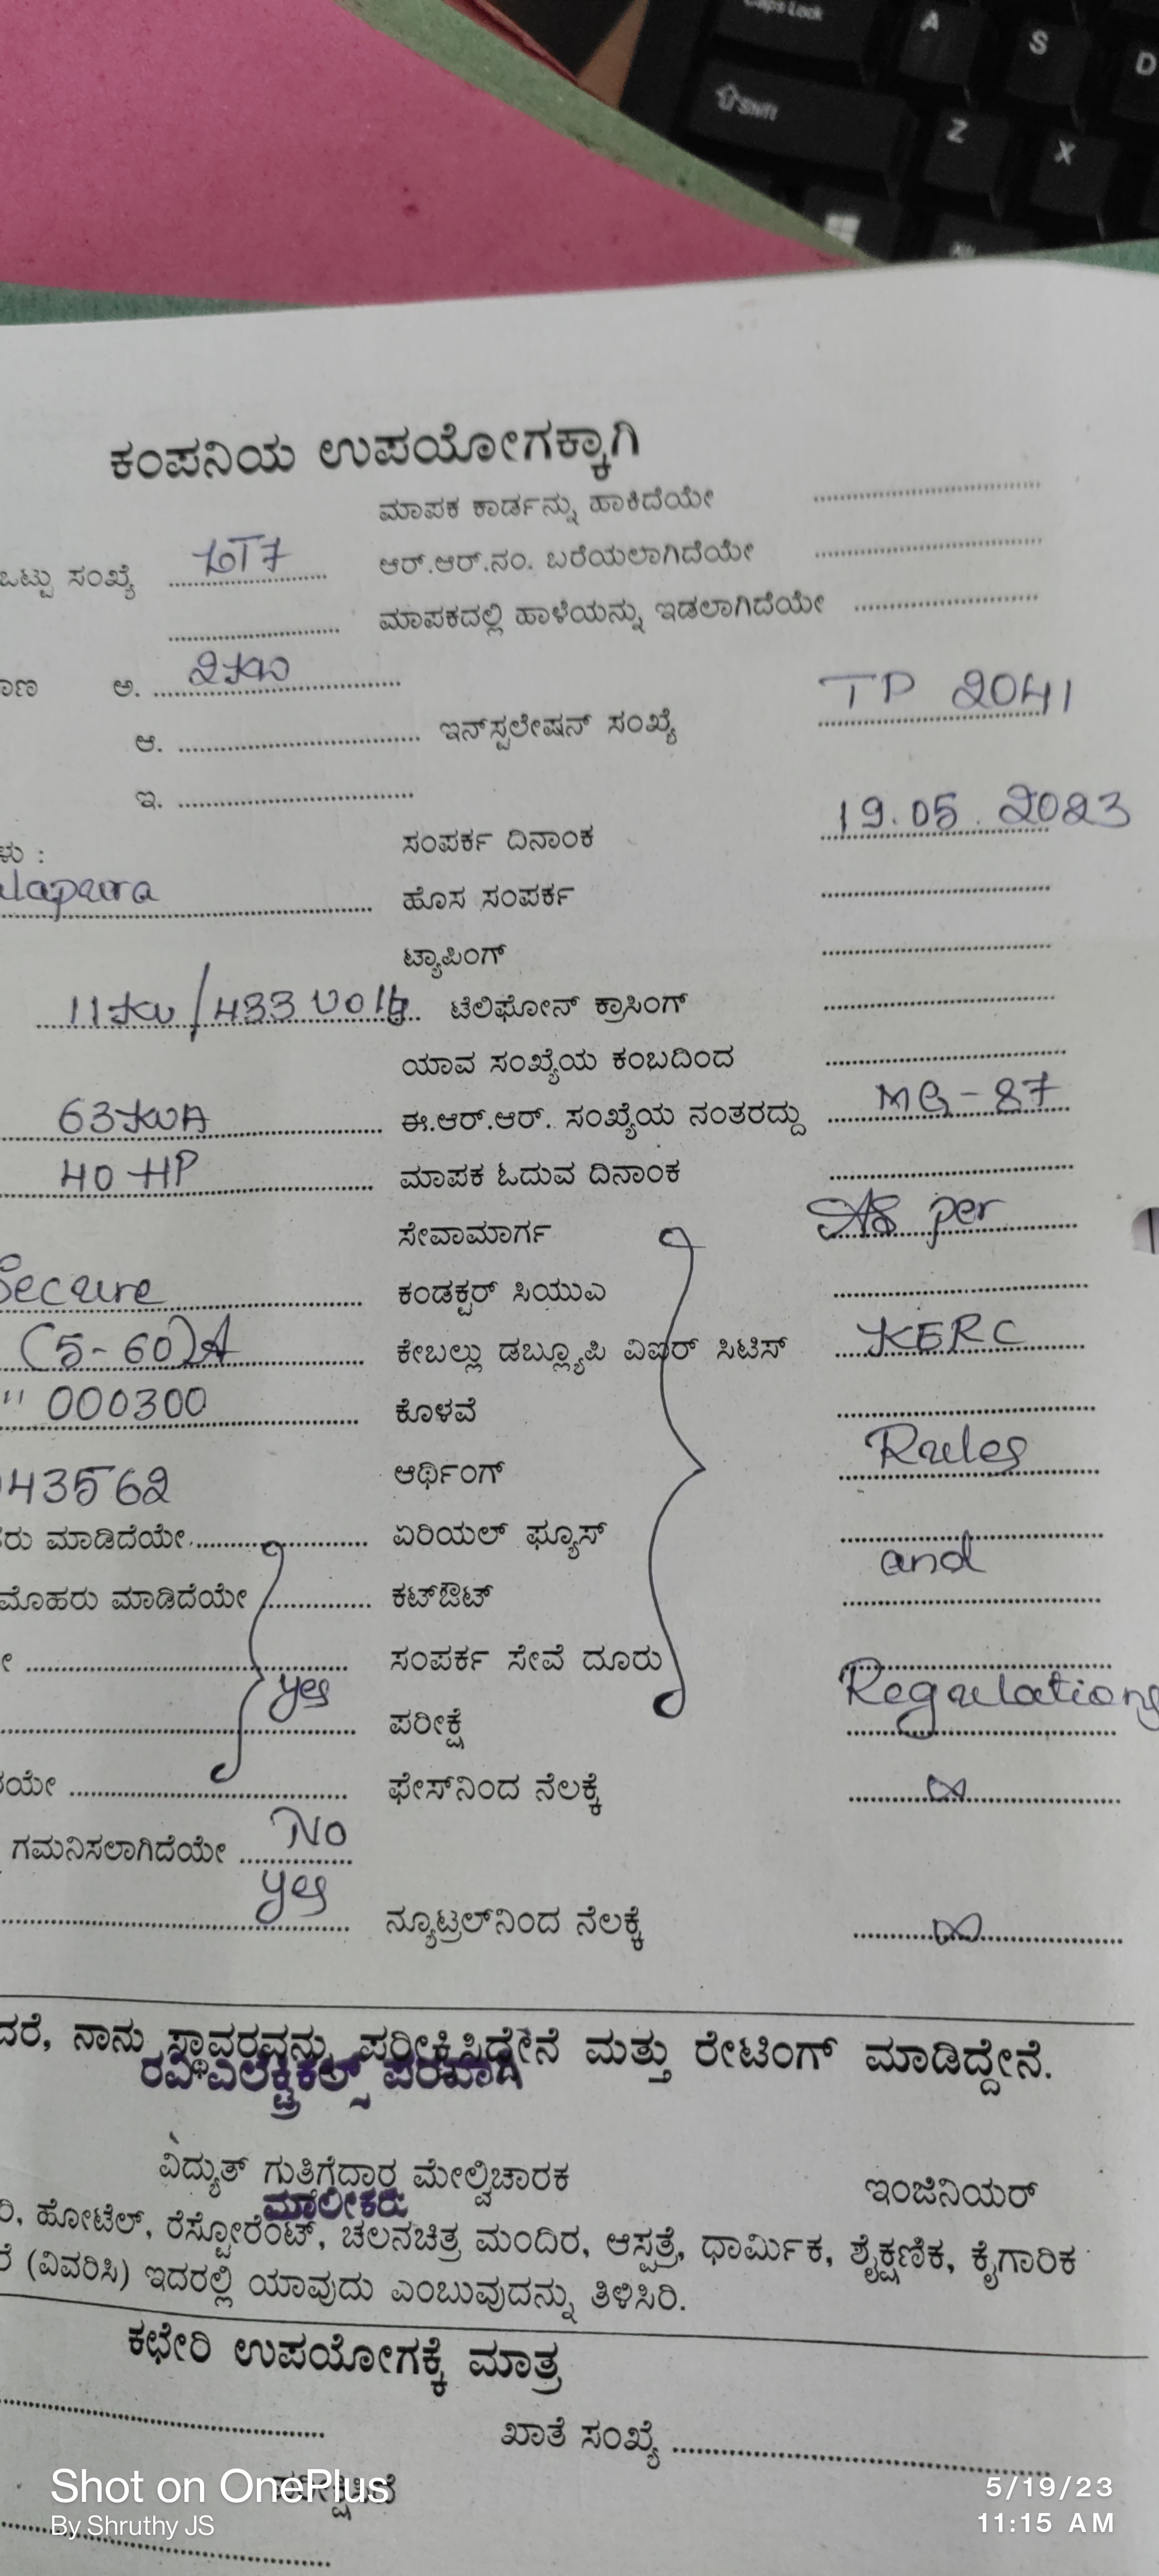 Caps Lock
A
S
D
Shift
Z
X
ಕಂಪನಿಯ ಉಪಯೋಗಕ್ಕಾಗಿ
ಮಾಪಕ ಕಾರ್ಡನ್ನು ಹಾಕಿದೆಯೇ
ಒಟ್ಟು ಸಂಖ್ಯೆ ಆರ್.ಆರ್.ನಂ. ಬರೆಯಲಾಗಿದೆಯೇ
ಮಾಪಕದಲ್ಲಿ ಹಾಳೆಯನ್ನು ಇಡಲಾಗಿದೆಯೇ
ಅ. 2KW
ಆ. ಇನ್‌ಸ್ಟಲೇಷನ್ ಸಂಖ್ಯೆ TP 2041
ಇ.
ಸಂಪರ್ಕ ದಿನಾಂಕ 19.05.2023
lapura ಹೊಸ ಸಂಪರ್ಕ
ಟ್ಯಾಪಿಂಗ್
11KV/433 Volts ಟೆಲಿಫೋನ್ ಕ್ರಾಸಿಂಗ್
ಯಾವ ಸಂಖ್ಯೆಯ ಕಂಬದಿಂದ
63KVA ಈ.ಆರ್.ಆರ್. ಸಂಖ್ಯೆಯ ನಂತರದ್ದು MG-87
40 HP ಮಾಪಕ ಓದುವ ದಿನಾಂಕ
ಸೇವಾಮಾರ್ಗ As per
Secure ಕಂಡಕ್ಟರ್ ಸಿಯುಎ
(5-60)A ಕೇಬಲ್ಲು ಡಬ್ಲ್ಯೂಪಿ ವಿಐರ್ ಸಿಟಿಸ್ KERC
" 000300 ಕೊಳವೆ
43562 ಆರ್ಥಿಂಗ್ Rules
ರು ಮಾಡಿದೆಯೇ ಏರಿಯಲ್ ಫ್ಯೂಸ್ and
ಮೊಹರು ಮಾಡಿದೆಯೇ ಕಟ್‌ಔಟ್
ಸಂಪರ್ಕ ಸೇವೆ ದೂರು Regulations
yes ಪರೀಕ್ಷೆ
ಯೇ ಫೇಸ್‌ನಿಂದ ನೆಲಕ್ಕೆ ∞
ಗಮನಿಸಲಾಗಿದೆಯೇ No
yes ನ್ಯೂಟ್ರಲ್‌ನಿಂದ ನೆಲಕ್ಕೆ ∞
ದರೆ, ನಾನು ಸ್ಥಾವರವನ್ನು ಪರೀಕ್ಷಿಸಿದ್ದೇನೆ ಮತ್ತು ರೇಟಿಂಗ್ ಮಾಡಿದ್ದೇನೆ.
ರವಿ ಎಲೆಕ್ಟ್ರಿಕಲ್ಸ್ ಪರವಾಗಿ
ವಿದ್ಯುತ್ ಗುತಿಗೆದಾರ ಮೇಲ್ವಿಚಾರಕ ಇಂಜಿನಿಯರ್
ಮಾಲೀಕರು
ರಿ, ಹೋಟೆಲ್, ರೆಸ್ಟೋರೆಂಟ್, ಚಲನಚಿತ್ರ ಮಂದಿರ, ಆಸ್ಪತ್ರೆ, ಧಾರ್ಮಿಕ, ಶೈಕ್ಷಣಿಕ, ಕೈಗಾರಿಕ
ರೆ (ವಿವರಿಸಿ) ಇದರಲ್ಲಿ ಯಾವುದು ಎಂಬುವುದನ್ನು ತಿಳಿಸಿರಿ.
ಕಛೇರಿ ಉಪಯೋಗಕ್ಕೆ ಮಾತ್ರ
ಖಾತೆ ಸಂಖ್ಯೆ
Shot on OnePlus
By Shruthy JS
5/19/23
11:15 AM